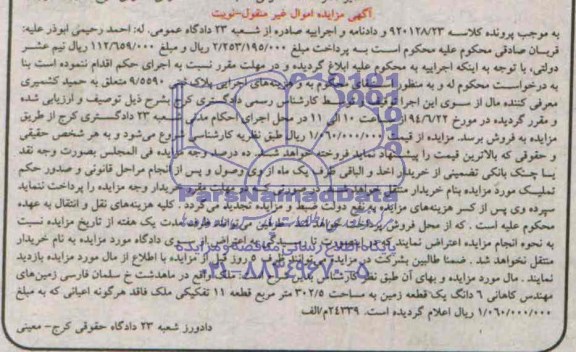 آگهی مزایده اموال غیر منقول-نوبت
به موجب پرونده کلاسه ۹۲۰۱۲۸/۲۳ و دادنامه و اجراییه صادره از شعبه ۲۳ دادگاه عمومی. له: احمد رحیمی ابوذر علیه:
قربان صادقی محکوم علیه محکوم است به پرداخت مبلغ ۲/۲۵۳/۱۹۵/۰۰۰ ریال و مبلغ ۱۱۲/۶۵۹/۰۰۰ ریال نیم عشر
دولتی، با توجه به اینکه اجراییه به محکوم علیه ابلاغ گردیده و در مهلت مقرر نسبت به اجرای حکم اقدام ننموده است بنا
به درخواست محکوم له و به منظور محکوم به و هزینه‌های اجرایی پلاک ثبتی ۹/۵۵۹۰ متعلق به حمید کشمیری
معرفی کننده مال از سوی این اجرا توقیف کارشناس رسمی دادگستری کرج بشرح ذیل توصیف و ارزیابی شده
و مقرر گردیده در مورخ ۹۴/۶/۲۲ ساعت ۱۰ الی ۱۱ در محل اجرای احکام مدنی شعبه ۲۳ دادگستری کرج از طریق
مزایده به فروش برسد. مزایده از قیمت ۱/۰۶۰/۰۰۰/۰۰۰ ریال طبق نظریه کارشناسی شروع می‌شود و به هر شخص حقیقی
و حقوقی که بالاترین قیمت را پیشنهاد نماید فروخته خواهد شد. ده درصد وجه مزایده فی المجلس بصورت وجه نقد
یا چک بانکی تضمینی از خریدار اخذ و الباقی ظرف یک ماه از وی وصول و پس از انجام مراحل قانونی و صدور حکم
تملیک مورد مزایده بنام خریدار منتقل خواهد شد. در صورتی که در مهلت مقرر خریدار وجه مزایده را پرداخت ننماید
سپرده وی پس از کسر هزینه‌های مزایده به نفع دولت ضبط و مزایده تجدید می گردد. کلیه هزینه‌های نقل و انتقال به عهده
محکوم علیه است. که از محل فروش پرداخت خواهد شد. طرفین می‌توانند ظرف مدت یک هفته از تاریخ مزایده نسبت
به نحوه انجام مزایده اعتراض نمایند که در اینصورت تا رسیدگی به اعتراض از سوی دادگاه مورد مزایده به نام خریدار
منتقل نخواهد شد. ضمنا طالبین بشرکت در مزایده می‌توانند ظرف ۵ روز قبل از مزایده با اطلاع از مال مورد مزایده بازدید
نمایند. مال مورد مزایده و بهای آن طبق نظر کارشناسی بدین شرح است: ملک واقع در ماهدشت خ سلمان فارسی زمین‌های
مهندس کاهانی ۶ دانگ یک قطعه زمین به مساحت ۳۰۲/۵ متر مربع قطعه ۱۱ تفکیکی ملک فاقد هرگونه اعیانی که به مبلغ
۱/۰۶۰/۰۰۰/۰۰۰ ریال اعلام گردیده است. ۲۴۳۳۹/م الف
دادورز شعبه ۲۳ دادگاه حقوقی کرج- معینی
ParsNamadData
پایگاه اطلاع رسانی مناقصه و مزایده
۰۲۱-۸۸۳۴۹۶۷۰-۵